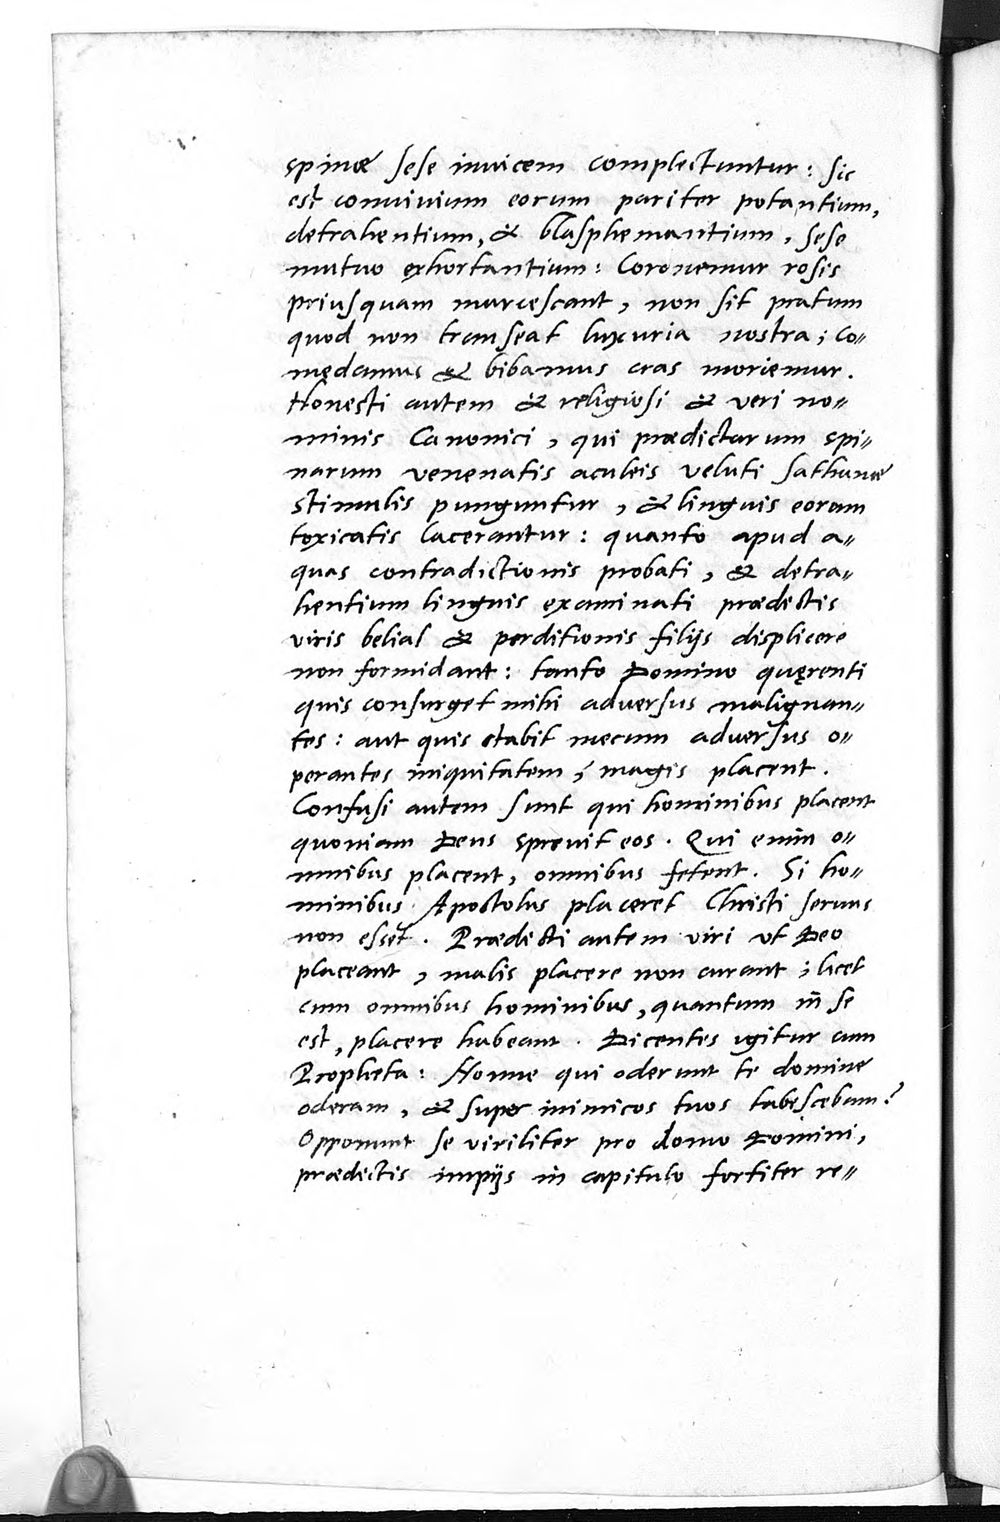 spinæ sese inuicem complectuntur: sic
est conuiuium eorum pariter potantium,
detrahentium, & blasphemantium, sese
mutuo exhortantium: Coronemur rosis
priusquam marcescant, non sit pratum
quod non transeat luxuria nostra; co=
medamus & bibamus cras moriemur.
Honesti autem & religiosi & veri no=
minis Canonici, qui prædictarum spi=
narum venenatis aculeis veluti sathanæ
stimulis punguntur, & linguis eorum
toxicatis lacerantur: quanto apud a=
quas contradictionis probati, & detra=
hentium linguis examinati prædictis
viris belial & perditionis filijs displicere
non formidant: tanto Domino quęrenti
quis consurget mihi aduersus malignan=
tes: aut quis stabit mecum aduersus o=
perantes iniquitatem; magis placent.
Confusi autem sunt qui hominibus placent
quoniam Deus spreuit eos. Qui enim o=
mnibus placent, omnibus fetent. Si ho=
minibus Apostolus placeret Christi seruus
non esset. Prædicti autem viri vt Deo
placeant, malis placere non curant; licet
cum omnibus hominibus, quantum in se
est, placere habeant. Dicentes igitur cum
Propheta: Nonne qui oderunt te domine
oderam, & super inimicos tuos tabescebam?
Opponunt se viriliter pro domo Domini,
prædictis impijs in capitulo fortiter re=